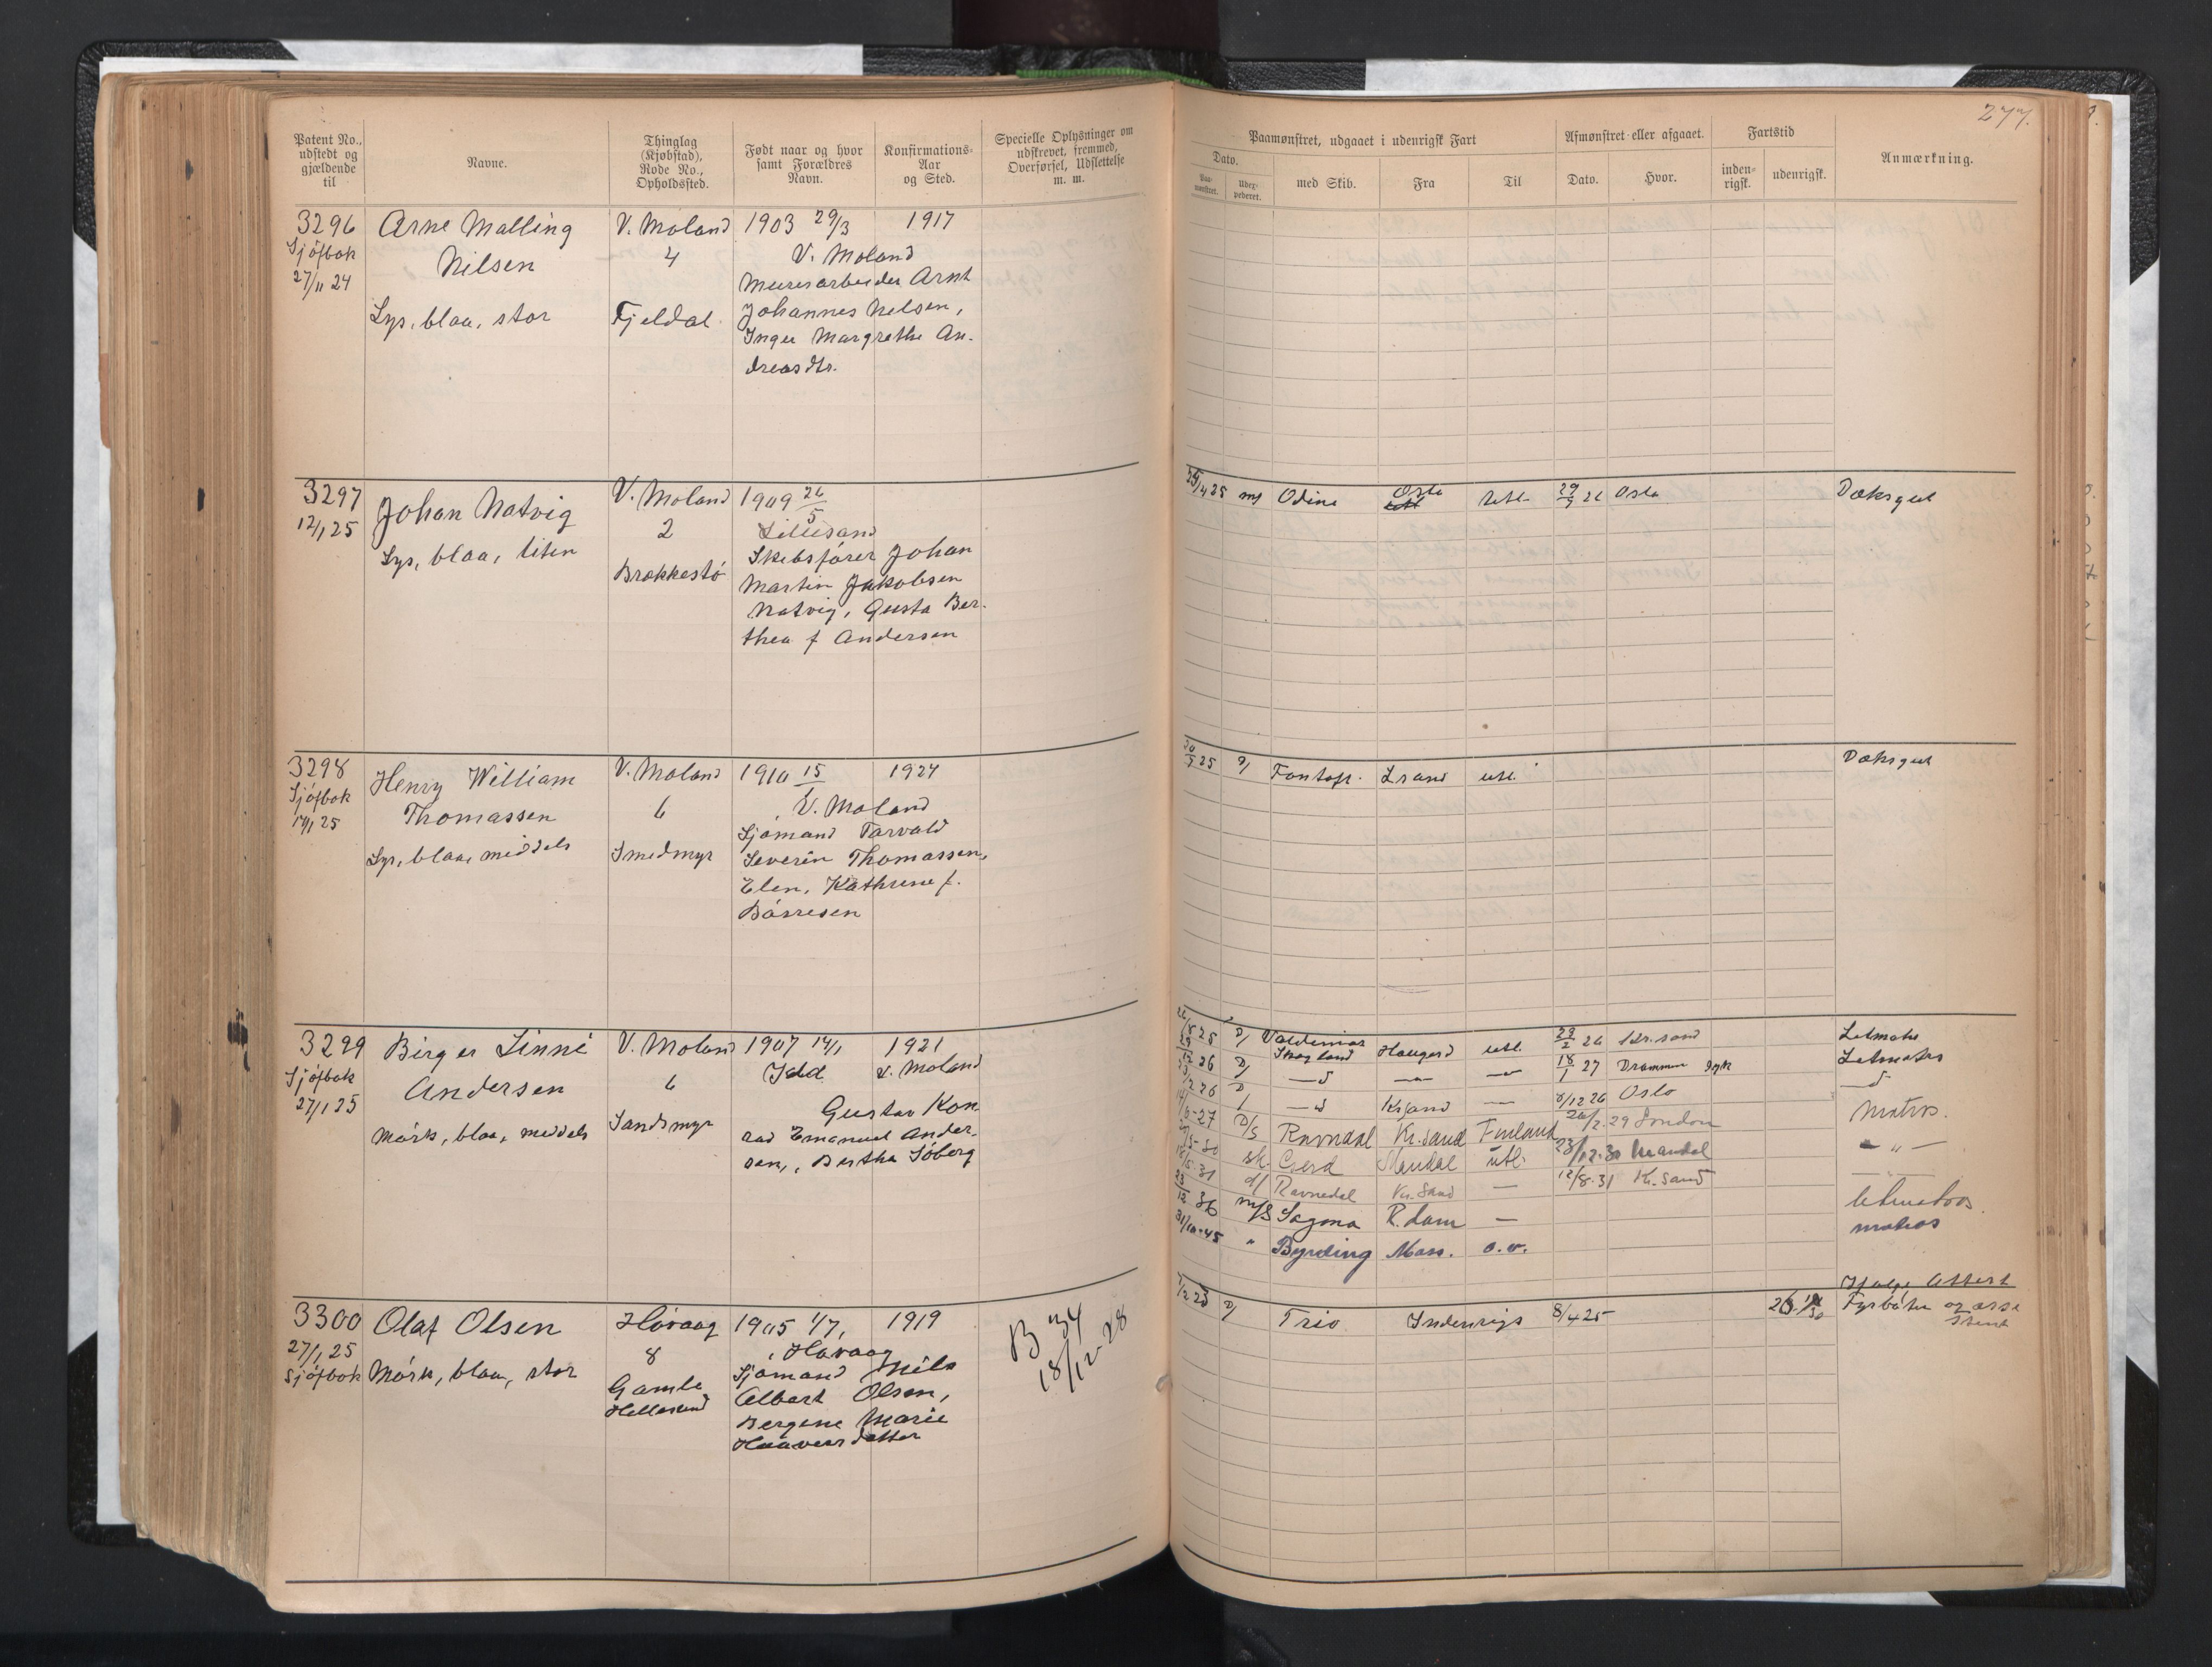 277.
Patent No., udstedt og gjældende til
Navne.
Thinglag (Kjøbstad), Rode No., Opholdssted.
Født naar og hvor samt Forældres Navn.
Konfirmations-Aar og Sted.
Specielle Oplysninger om udskrevet, fremmed, Overførsel, Udslettelse m. m.
Paamønstret, udgaaet i udenrigsk Fart
Dato.
Paa-mønstret.
Udex-pederet.
med Skib.
Fra
Til
Afmønstret eller afgaaet.
Dato.
Hvor.
Fartstid
inden-rigsk.
udenrigsk.
Anmærkning.
3296 Arne Malling V. Moland 1903 29/3 1917
Sjöfbok Nilsen 4 V. Moland
27/11 24 Murerarbeider Arnt
Lys, blaa, stor Fjeldal Johannes Nelsen,
Inger Margrethe An-
dreasdtr.
3297 Johan Natvig V. Moland 1909 26/5
12/1 25 2 Lillesand
Lys, blaa, liten Skibsförer Johan
Brækkestö Martin Jakobsen
Natvig, Gusta Ber-
thea f Andersen
25/4 25 m/ Odine Oslo utl. 29/9 26 Oslo Dæksgut
3298 Henry William V. Moland 1910 15/1 1924
Sjöfbok Thomassen 6 V. Moland
17/1 25 Sjömand Tarvald
Lys, blaa, middels Smedmyr Severin Thomassen,
Elen, Kathrine f.
Börresen
30/5 25 D/ Fontoft. Lsand utl. Dæksgut
3299 Birger Linné V. Moland 1907 14/1 1921
Sjöfbok Andersen 6 Idd V. Moland
27/1 25 Gustav Kon
Mörk, blaa, middels Sandsmyr rad Emanuel Ander-
sen, Bertha Söberg
25 D/ Valdemar Skogland Haugesd utl. 29/2 26 Kr.sand Letmatr
26 D/ —d —"— —"— 18/1 27 Drammen syk Letmatrs
26 D/ —d Krsand — 8/12 26 Oslo —d
14/6-27 D/S Ravnedal Kr.sand Finland 26/2.29 London Matros.
30 sk. Gerd Mandal utl. 23/12.30 Mandal — " —
18/5.31 d/ Ravnedal Kr. Sand — 12/8.31 Kr. Sand
23/12 36 m/s Sagona R.dam — letmatros.
31/10-45 " Byrding Moss. o.v. matros
3300 Olaf Olsen Hövaag 1905 1/7, 1919
27/1 25 8 Hövaag
Sjöfbok Mörk, blaa, stor Sjömand Nils
Gamle Albert Olsen,
Hellesund Bergine Marie
Haaversdatter
B 34
18/12-28
23 D/ Trio Indenrigs 8/4 25
Ifölge Attest
Fyrböter og asse
stent